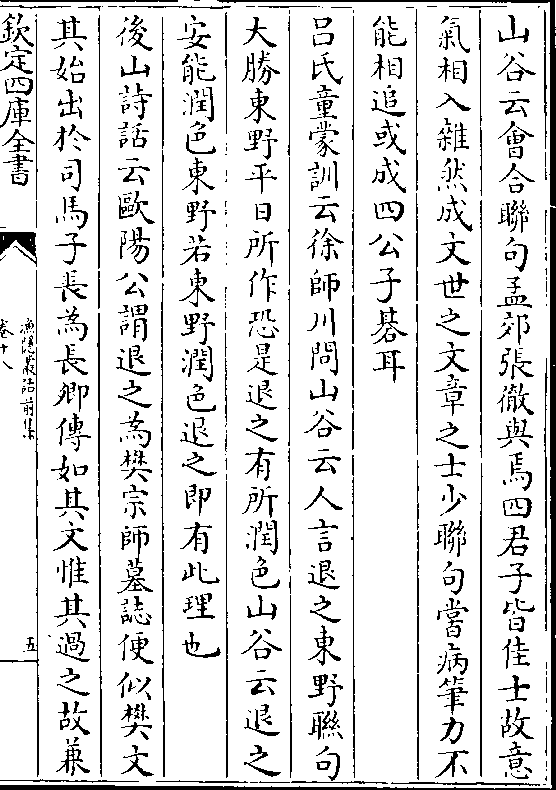 山谷云會合聯句孟郊張徹與焉四君子皆佳士故意
氣相入雜然成文世之文章之士少聯句嘗病筆力不
能相追或成四公子棊耳
呂氏童蒙訓云徐師川問山谷云人言退之東野聯句
大勝東野平日所作恐是退之有所潤色山谷云退之
安能潤色東野若東野潤色退之即有此理也
後山詩話云歐陽公謂退之為樊宗師墓誌便似樊文
其始出於司馬子長為長卿傳如其文惟其過之故兼
欽定四庫全書
漁隱叢話前集
卷十八
五